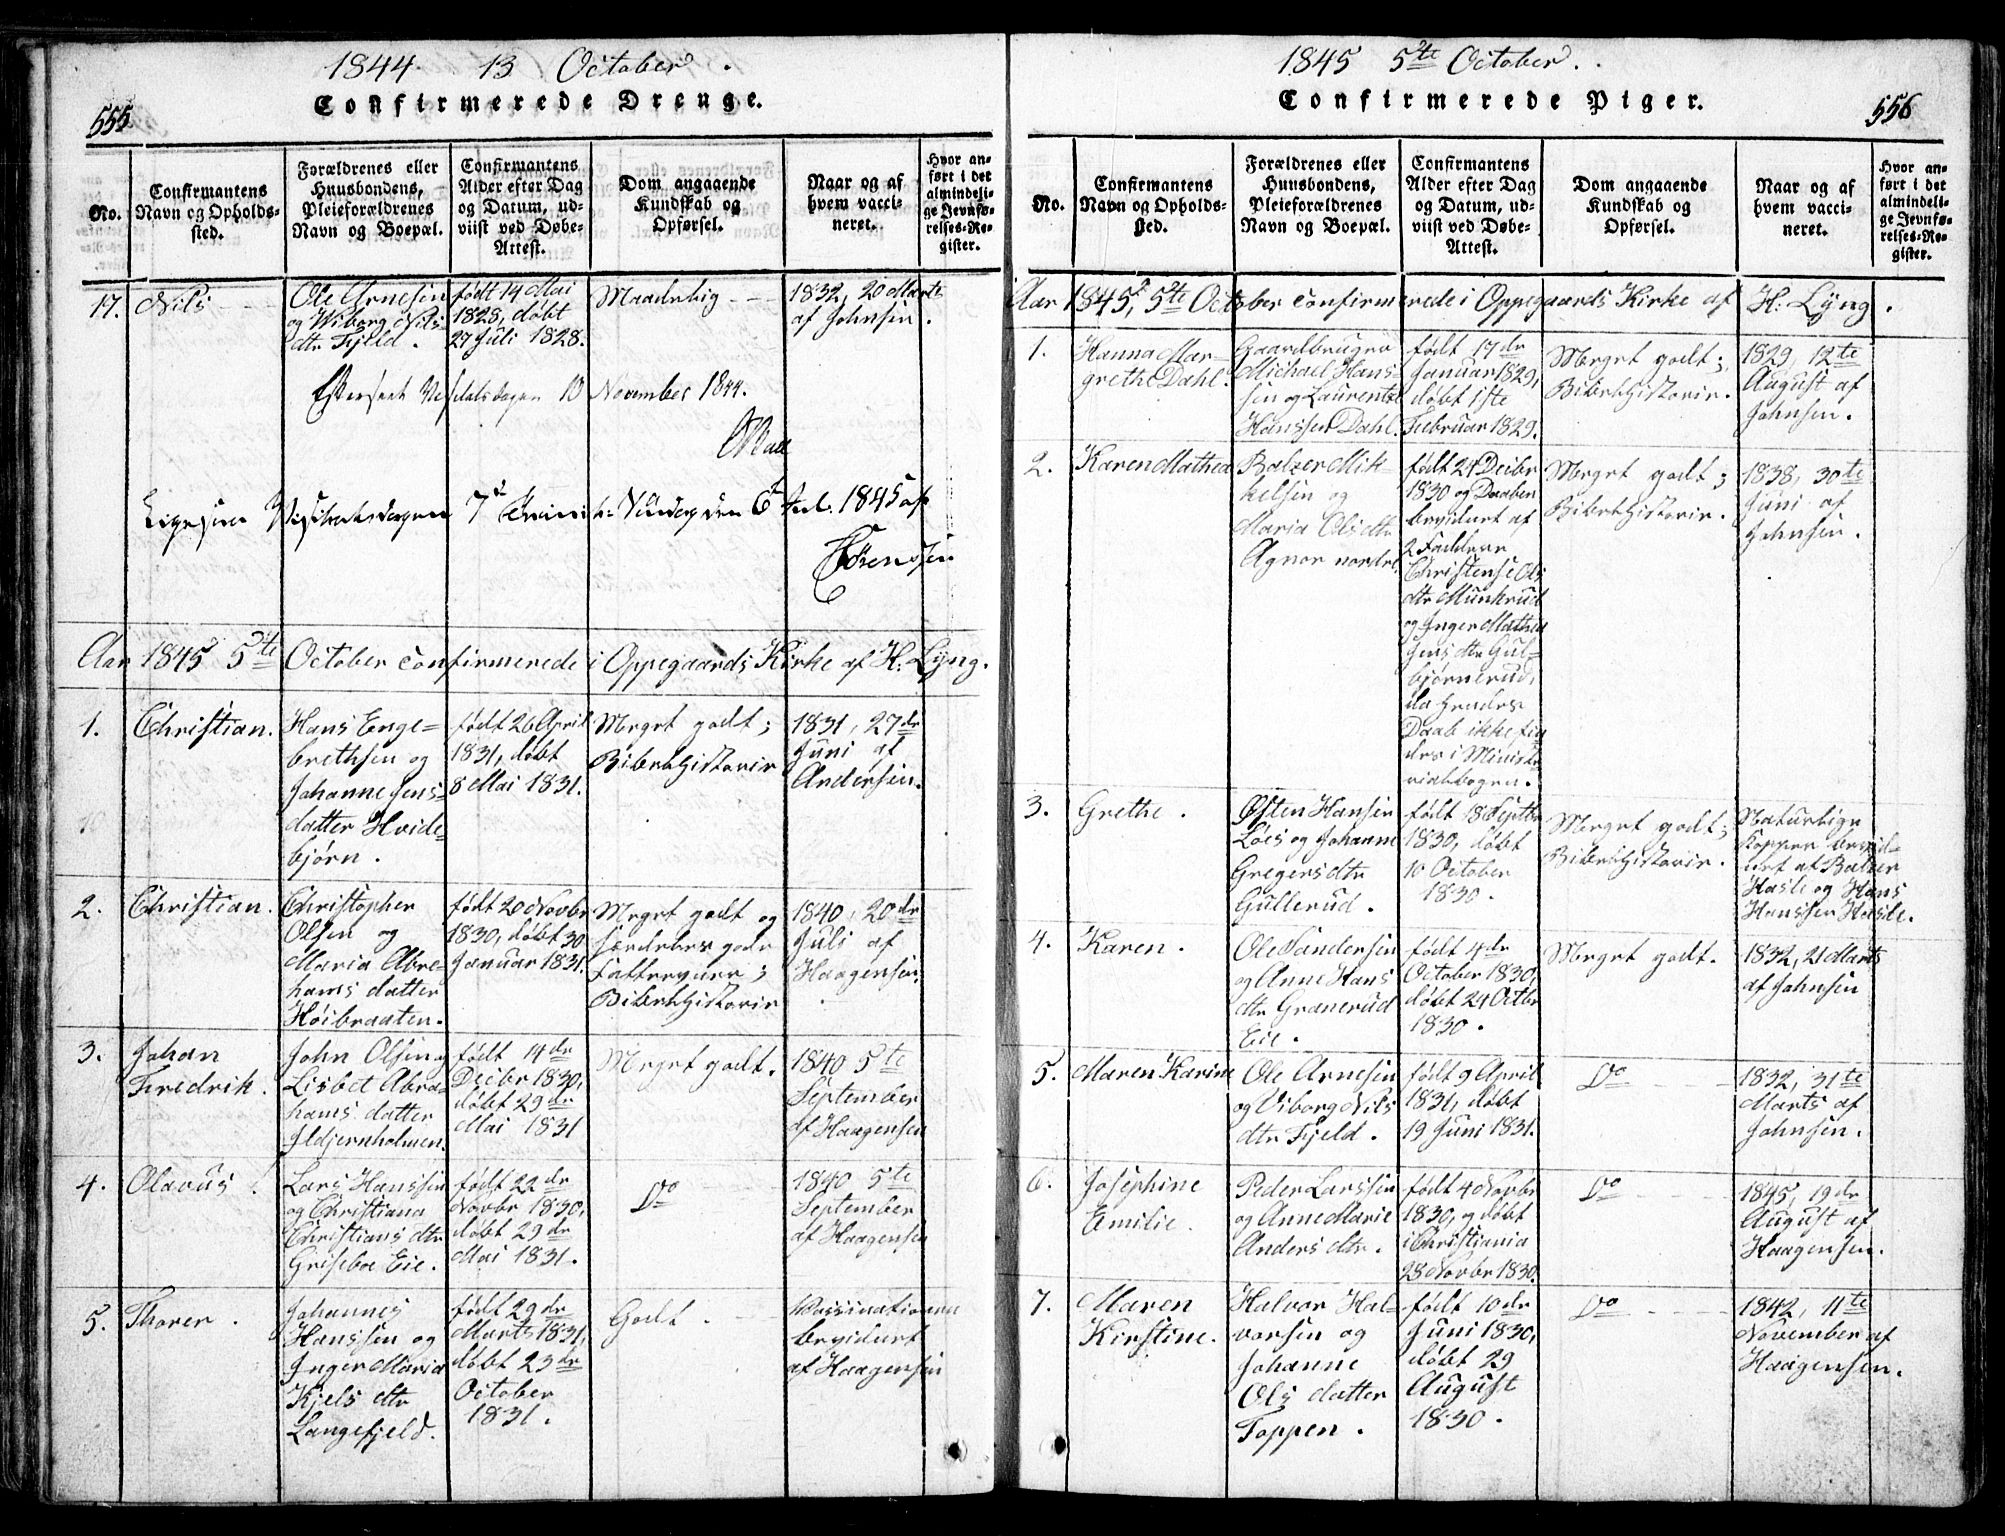 1844. 13 October.
Confirmerede Drenge.
555
No.
Confirmantens
Navn og Opholds-
sted.
Forældrenes eller
Huusbondens,
Pleieforældrenes
Navn og Boepæl.
Confirmantens
Alder efter Dag
og Datum, ud-
viist ved Døbe-
Attest.
Dom angaaende
Kundskab og
Opførsel.
Naar og af
hvem vacci-
neret.
Hvor an-
ført i det
almindeli-
ge Jevnfø-
relses-Re-
gister.
17.
Nils
Ole Arnesen
og Wiborg Nils
dtr Fjeld.
født 14 Mai
1828, døbt
27 Juli 1828.
Maadelig
1832, 20 Marts
af Johnsen.
Efterseet
10 November 1844.
1845 af
Sørenssen
Aar 1845 5te October confirmerede i Oppegaards Kirke af H. Lyng.
1.
Christian.
Hans Enge=
brethsen og
Johanne Jens-
datter Hvide-
bjørn.
født 26 April
1831, døbt
8 Mai 1831.
Meget godt;
Bibelhistorie
1831, 27de
Juni af
Andersen.
2.
Christian.
Christopher
Olsen og
Maria Abra-
hams datter
Høibraaten.
født 20 Novbr
1830, døbt 30
Januar 1831.
Meget godt og
særdeles gode
Fatteevner;
Bibelhistorie
1840, 20de
Juli af
Haagensen.
3.
Johan
Fredrik.
John Olsen og
Lisbet Abra-
hams datter
Ildjernholmen.
født 14de
Decbr 1830,
døbt 29de
Mai 1831
Meget godt.
1840 5te
September
af Haagensen
4.
Olavus.
Lars Hanssen
og Christiana
Christians dtr
Griseboe Eie.
født 22de
Novbr 1830,
døbt 29de
Mai 1831.
Do
1840 5te
September
af Haagensen
5.
Thorer.
Johannes
Hanssen og
Inger Maria
Kjels dtr
Langefjeld.
født 29de
Marts 1831,
døbt 23de
October
1831.
Godt.
Vassinationen
bevidnet
af Haagensen
1845 5te October.
Confirmerede Piger.
556
No.
Confirmantens
Navn og Opholds-
sted.
Forældrenes eller
Huusbondens,
Pleieforældrenes
Navn og Boepæl.
Confirmantens
Alder efter Dag
og Datum, ud-
viist ved Døbe-
Attest.
Dom angaaende
Kundskab og
Opførsel.
Naar og af
hvem vacci-
neret.
Hvor an-
ført i det
almindeli-
ge Jevnfø-
relses-Re-
gister.
Aar 1845, 5te October confirmerede i Oppegaards Kirke af H. Lyng.
1.
Hanna Mar-
grethe Dahl.
Gaardbruger
Michael Hans-
sen og Laurentze
Hanssen Dahl.
født 17de
Januar 1829,
døbt 1ste
Februar 1829.
Meget godt;
Bibelhistorie.
1829, 12te
August af
Johnsen.
2.
Karen Mathea
Balzer Mik-
kelsen og
Maria Ols dtr
Agnor nordre.
født 24 Decbr
1830 og Daaben
bevidnet af
2 Faddere
Christense Ols
dtr Munkrud
og Inger Mathea
Jens dtr Gul-
bjørnerud,
da hendes
Daab ikke fin
des i Ministe-
rialbogen.
Meget godt;
Bibelhistorie.
1838, 30te
Juni af
Johnsen.
3.
Grethe.
Østen Hansen
Løes og Johanne
Gregers dtr
Gullerud.
født 18 Septbr
1830, døbt
10 October
1830.
Meget godt;
Bibelhistorie.
Naturlige
Kopper bevid-
net af Balzer
Hasle og Hans
Hanssen Hasle.
4.
Karen.
Ole Sandersen
og Anne Hans
dtr Granerud
Eie.
født 4de
October 1830,
døbt 24 Octbr
1830.
Meget godt.
1832, 21 Marts
af Johnsen
5.
Maren Karine
Ole Arnesen
og Viborg Nils
dtr Fjeld.
født 9 April
1831, døbt
19 Juni 1831.
Do
1832, 31te
Marts af
Johnsen.
6.
Josephine
Emilie.
Peder Larssen
og Anne Marie
Anders dtr.
født 4 Novbr
1830, og døbt
i Christiania
28 Novbr 1830.
Do
1845, 19de
August af
Haagensen.
7.
Maren
Kirstine.
Halvor Hal-
vorsen og
Johanne
Ols datter
Toppen.
født 10de
Juni 1830,
døbt 29
August
1830.
Do
1842, 11te
November af
Haagensen.